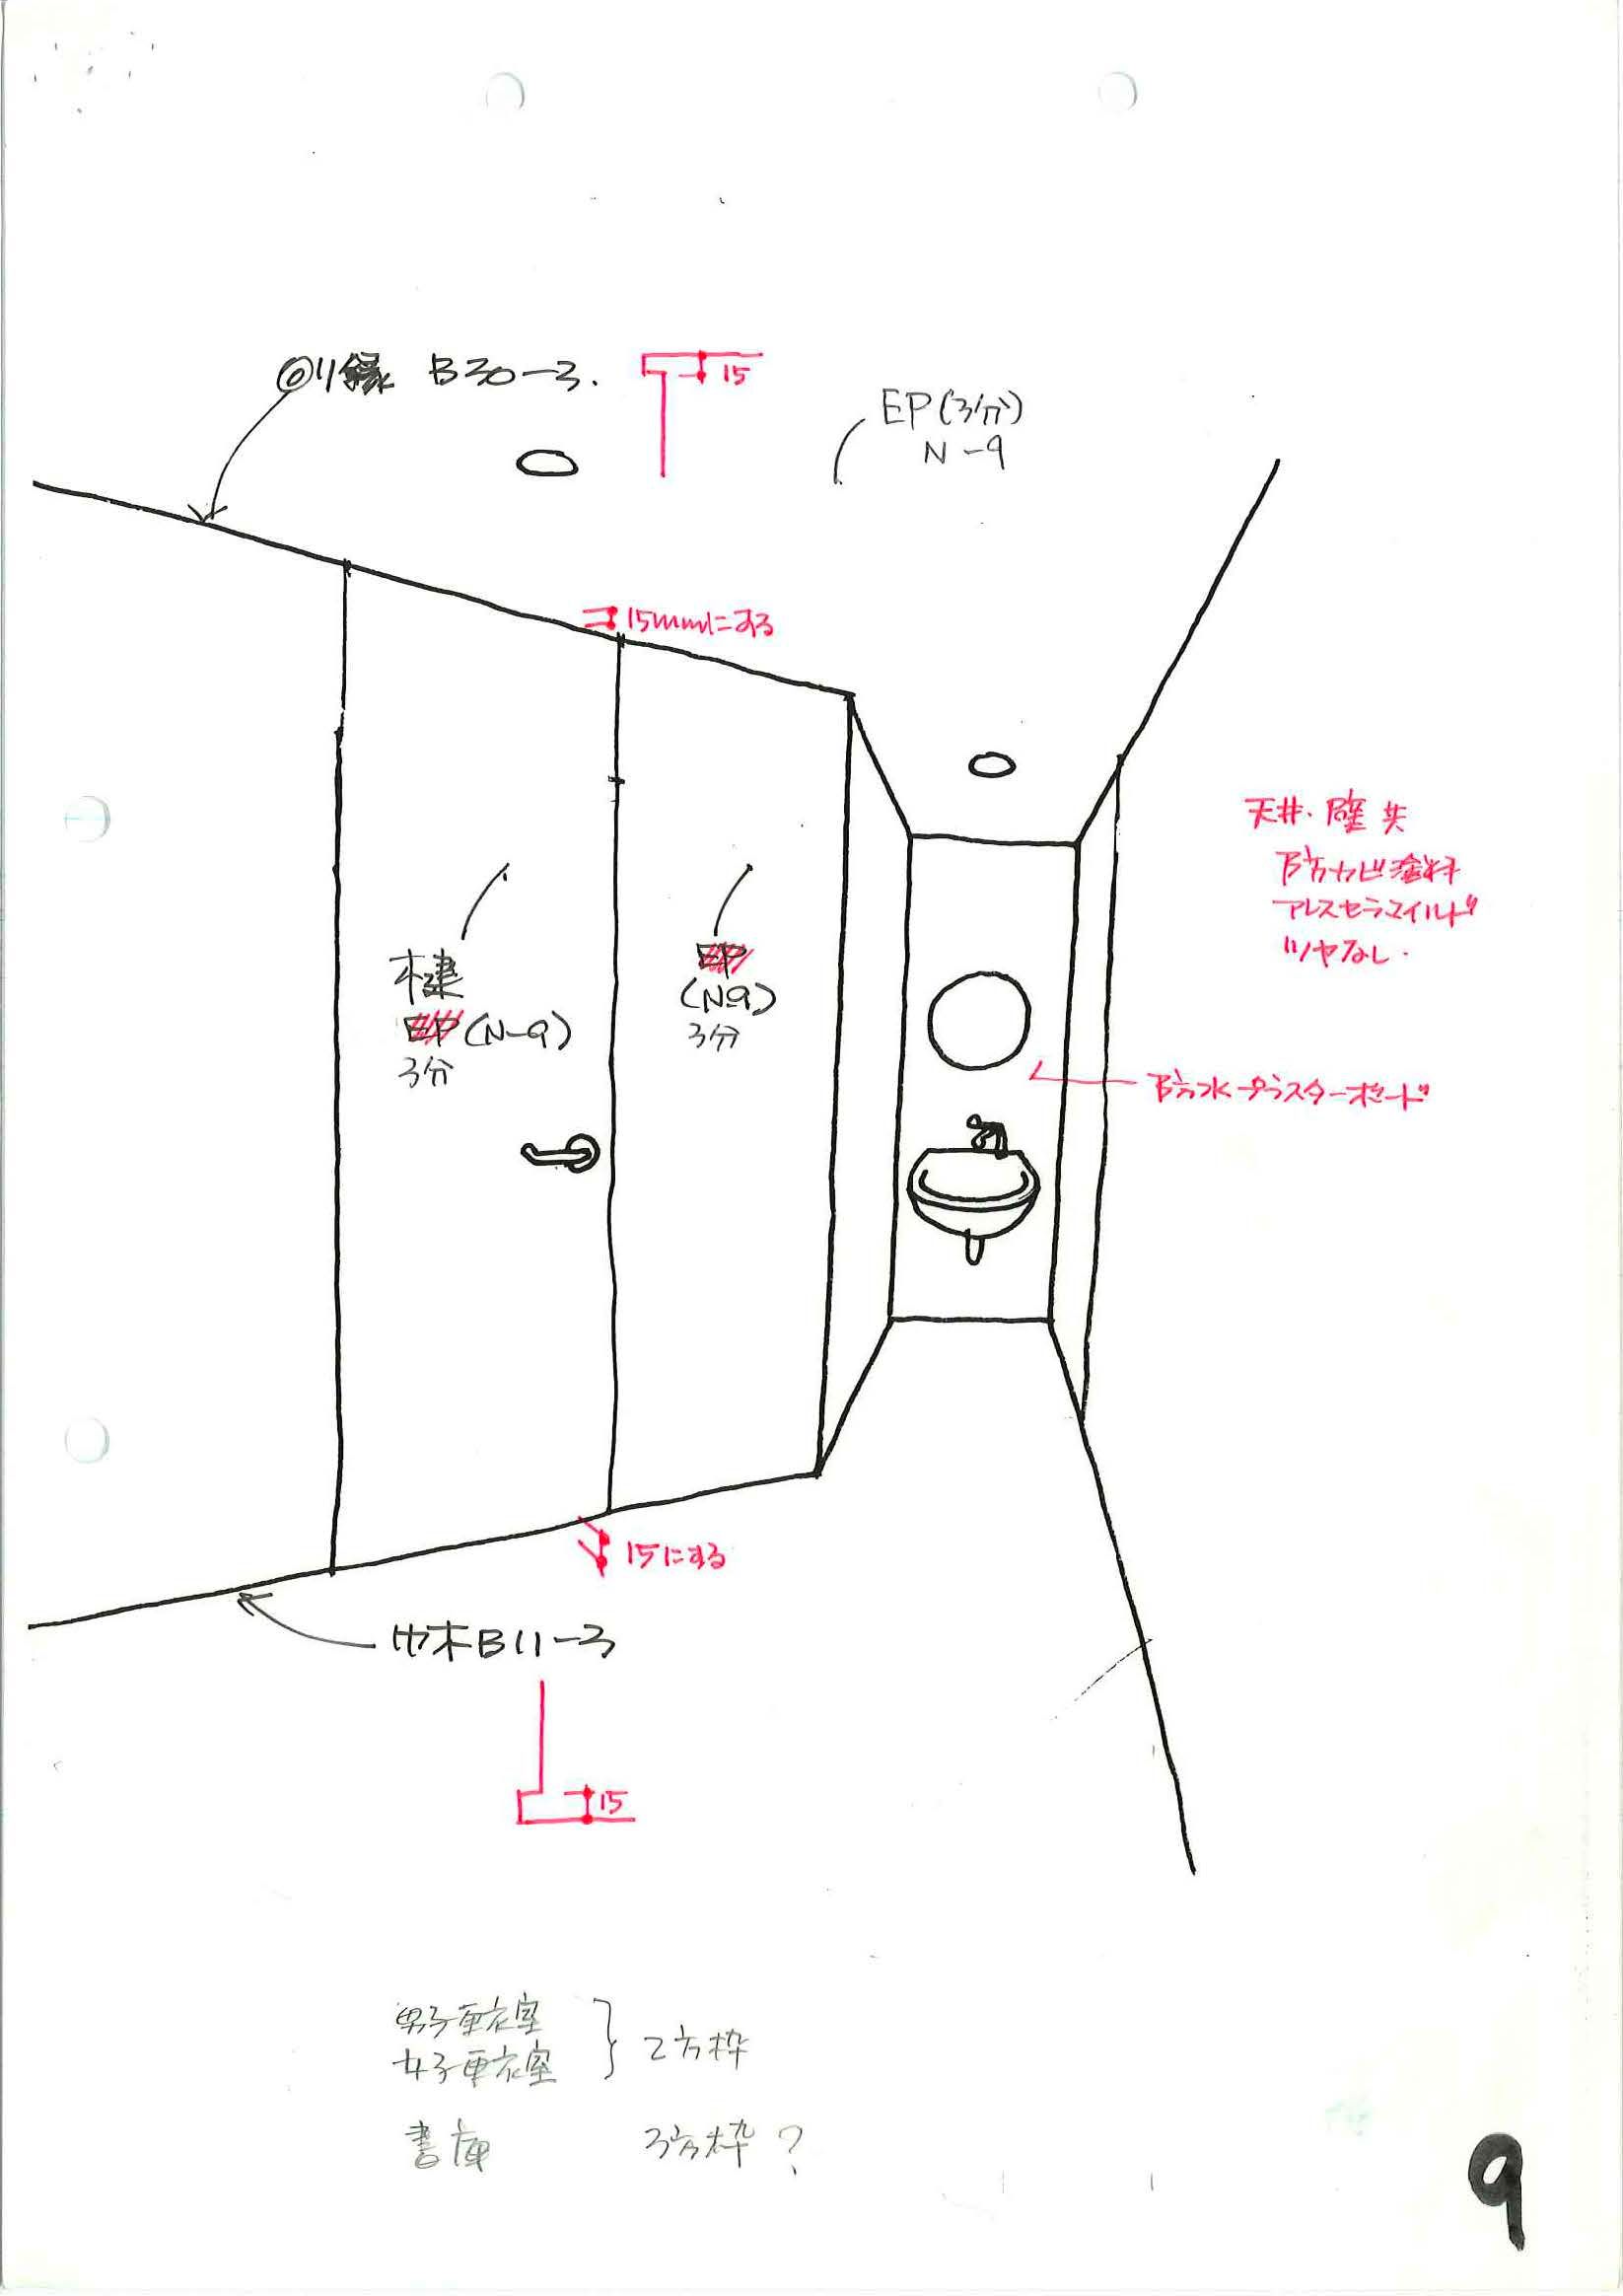 廻り縁 B30-3.
15
EP(3分)
N-9
15mmにする
天井・壁共
防カビ塗料
アレスセラマイルド
ツヤなし.
木建
EP(N-9)
3分
EP
(N9)
3分
防水プラスターボード
15にする
巾木B11-3
15
男子更衣室
女子更衣室
2方枠
書庫 3方枠?
9